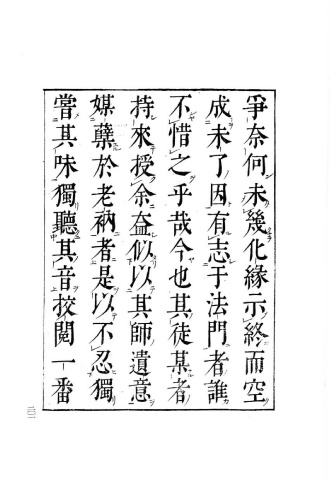 爭奈何未幾化緣示終而空
成未了因有志于法門者誰
不惜之乎哉今也其徒某者
持來授余益似以其師遺意
媒蘖於老衲者是以不忍獨
嘗其味獨聽其音挍閱一番